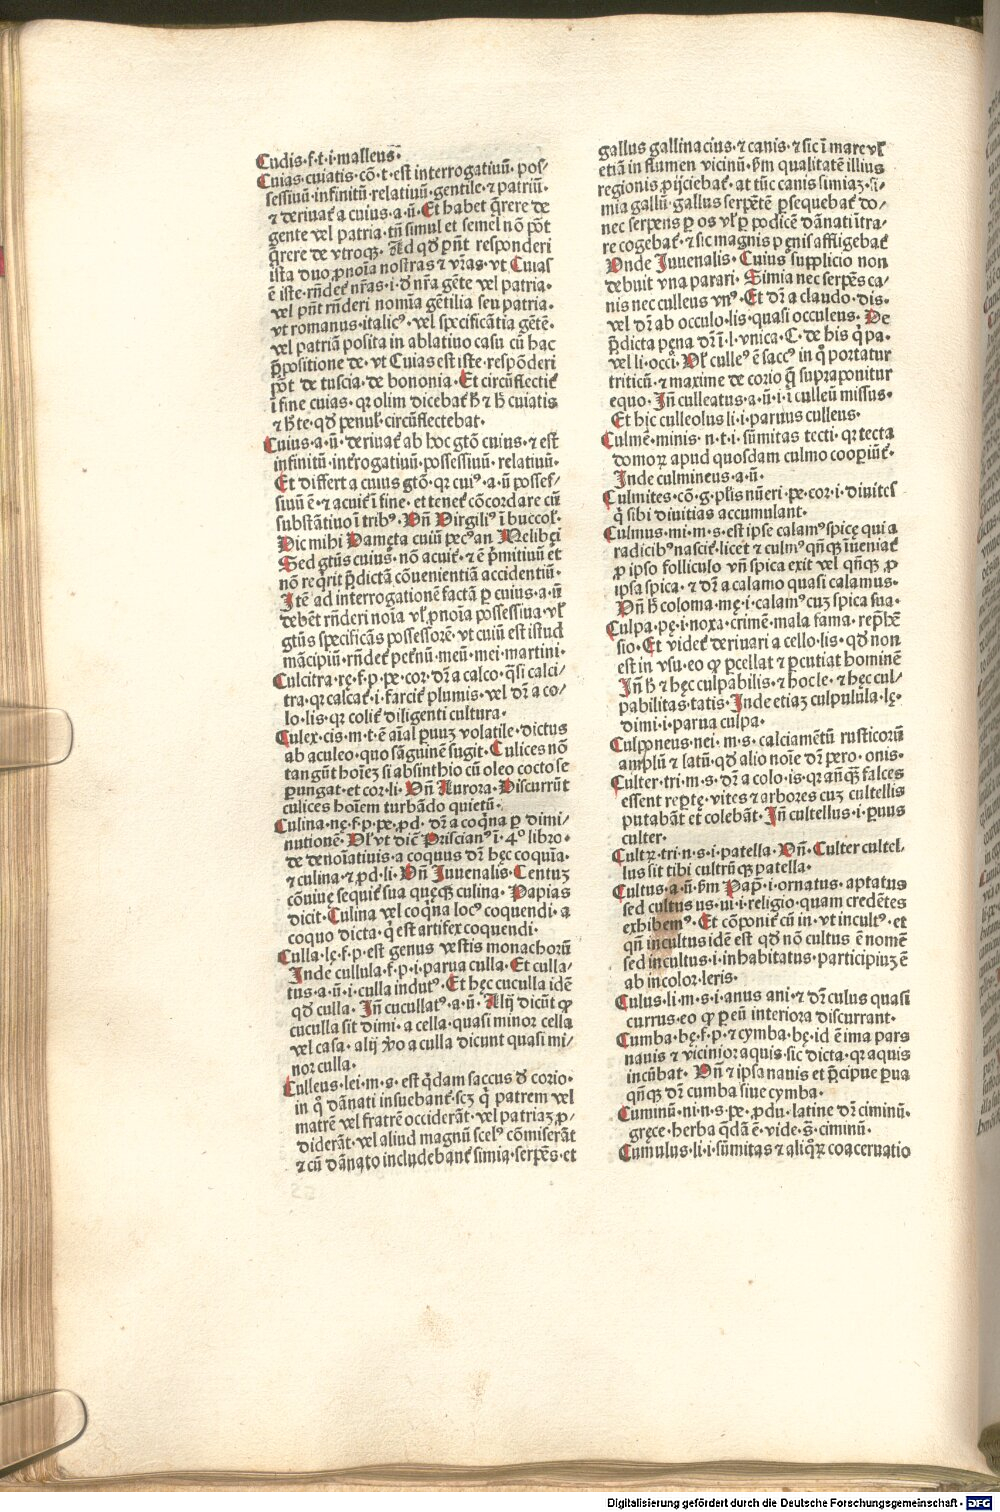 Cudis·f·t·i·malleus·
Cuias·cuiatis·cō·t·est interrogatiuū·pos/
sessiuū·infinitū·relatiuū·gentile·⁊ patriū·
⁊ deriuat̄ a cuius·a·ū·Et habet q̄rere de
gente vel patria·tn̄ simul et semel nō pōt
q̄rere de vtroqꝫ·Ad qd̓ pn̄t responderi
ista duo ꝓnoīa nostras ⁊ vr̄as·vt Cuias
ē iste·rn̄det̄ nr̄as·i·d̓ nr̄a gēte vel patria·
vel pn̄t rn̄deri nomīa gētilia seu patria·
vt romanus·italicꝰ·vel specificātia gētē·
vel patriā posita in ablatiuo casu cū hac
p̄positione de·vt Cuias est iste·respōderi
pōt de tuscia·de bononia·Et circūflectit̄
ī fine cuias·qꝛ olim dicebat̄ h̓ ⁊ h̓ cuiatis
⁊ h̓ te·qd̓ penul̓·circūflectebat·
Cuius·a·ū·deriuat̄ ab hoc gtō cuius·⁊ est
infinitū·interogatiuū·possessiuū·relatiuū·
Et differt a cuius gtō·qꝛ cuiꝰ·a·ū possef/
siuū ē·⁊ acuit̄ ī fine·et tenet̄ cōcordare cū
substātiuo ī tribꝰ·Vn̄ Virgiliꝰ ī buccol̓·
Dic mihi Dameta cuiū pecꝰ an Melibęi
Sed gtūs cuius·nō acuit̄·⁊ ē p̄mitiuū et
nō req̄rit p̄dictā cōuenientiā accidentiū·
Itē ad interrogationē factā ꝑ cuius·a·ū
debēt rn̄deri noīa vl̓ ꝓnoīa possessiua·vl̓
gtūs specificās possessorē·vt cuiū est istud
mācipiū·rn̄det̄ pet̄nū·meū·mei·martini·
Culcitra·rę·f·p·pe·cor·dr̄ a calco·q̄si calci/
tra·qꝛ calcat̄·i·farcit̄ plumis·vel dr̄ a co/
lo·lis·qꝛ colit̄ diligenti cultura·
Culex·cis·m·t·ē aīal ꝑuuꝫ volatile·dictus
ab aculeo·quo sāguinē sugit·Culices nō
tangūt hoīeꝫ si absinthio cū oleo cocto se
ꝑungat·et cor·li·Vn̄ Aurora·Discurrūt
culices hoīem turbādo quietū·
Culina·nę·f·p·pe·ꝓd·dr̄ a coq̄na ꝑ dimi/
nutionē·Vl̓ vt dicit̄ Priscianꝰ ī·4º libro·
de denoīatiuis·a coquus dr̄ hęc coquīa·
⁊ culina·⁊ ꝓd·li·Vn̄ Juuenalis·Centuꝫ
cōuiue sequit̄ sua quęqꝫ culina·Papias
dicit·Culina vel coq̄na locꝰ coquendi·a
coquo dicta·q̄ est artifex coquendi·
Culla·lę·f·p·est genus vestis monachorū
Inde cullula·f·p·i·parua culla·Et culla/
tus·a·ū·i·culla indutꝰ·Et hęc cuculla idē
qd̓ culla·Jn̄ cucullatꝰ·a·ū·Alij dicūt ꝙ
cuculla sit dimi·a cella·quasi minor cella
vel casa·alij ꝟo a culla dicunt quasi mi/
nor culla·
Culleus·lei·m·s·est q̄dam saccus d̓ corio·
in q̊ dānati insuebant̄·scꝫ q̇ patrem vel
matrē vel fratrē occiderāt·vel patriaꝫ ꝓ/
diderāt·vel aliud magnū scelꝰ cōmiserāt
⁊ cū dānato includebant̄ simia·serpēs·et
gallus gallinacius·⁊ canis·⁊ sic ī mare vl̓
etiā in flumen vicinū·ẜm qualitatē illius
regionis ꝓijciebat̄·at tūc canis simiaꝫ·si/
mia gallū·gallus serpētē ꝑsequebat̄ do/
nec serpens ꝑ os vl̓ ꝑ podicē dānati ītra/
re cogebat̄·⁊ sic magnis pęnis affligebat̄
Vnde Juuenalis·Cuius supplicio non
debuit vna parari·Simia nec serpēs ca/
nis nec culleus vnꝰ·Et dr̄ a claudo·dis·
vel dr̄ ab occulo·lis·quasi occuleus·De
p̄dicta pena dr̄ ī·l·vnica·C·de his q̇ pa·
vel li·occi·Vl̓ culleꝰ ē saccꝰ in q̊ portatur
triticū·⁊ maxime de corio q̄ supraponitur
equo·Jn̄ culleatus·a·ū·i·ī culleū missus·
Et hic culleolus li·i·paruus culleus·
Culmē·minis·n·t·i·sūmitas tecti·qꝛ tecta
domoꝝ apud quosdam culmo cooꝑiūt̄·
Inde culmineus·a·ū·
Culmites·cō·g·pl̓is nūeri·pe·cor·i·diuites
q̇ sibi diuitias accumulant·
Culmus·mi·m·s·est ipse calamꝰ spicę qui a
radicibꝰ nascit̄·licet ⁊ culmꝰ qn̄qꝫ īueniat̄
ꝓ ipso folliculo vn̄ spica exit vel qn̄qꝫ ꝓ
ipsa spica·⁊ dr̄ a calamo quasi calamus·
Vn̄ h̓ coloma·mę·i·calamꝰ cuꝫ spica sua·
Culpa·pę·i·noxa·crimē·mala fama·rep̄hē
sio·Et videt̄ deriuari a cello·lis·qd̓ non
est in vsu·eo ꝙ ꝑcellat ⁊ ꝑcutiat hominē
Jn̄ h̓ ⁊ hęc culpabilis·⁊ hoc le·⁊ hęc cul/
pabilitas·tatis·Inde etiaꝫ culpulula·lę·
dimi·i·parua culpa·
Culponeus·nei·m·s·calciamētū rusticorū
amplū ⁊ latū·qd̓ alio noīe dr̄ pero·onis·
Culter·tri·m·s·dr̄ a colo·is·qꝛ an̄q̄ꝫ falces
essent reptę·vites ⁊ arbores cuꝫ cultellis
putabāt et colebāt·Jn̄ cultellus·i·ꝑuus
culter·
Cultꝝ·tri·n·s·i·patella·Vn̄·Culter cultel/
lus sit tibi cultrūqꝫ patella·
Cultus·a·ū·ẜm Pap̄·i·ornatus·aptatus
sed cultus us·ui·i·religio·quam credētes
exhibemꝰ·Et cōponit̄ cū in·vt incultꝰ·et
qn̄ incultus idē est qd̓ nō cultus ē nomē
sed incultus·i·inhabitatus·participiuꝫ ē
ab incolor·leris·
Culus·li·m·s·i·anus ani·⁊ dr̄ culus quasi
currus·eo ꝙ ꝑ eū interiora discurrant·
Cumba·bę·f·p·⁊ cymba·bę·id ē ima pars
nauis ⁊ vicinior aquis·sic dicta·qꝛ aquis
incūbat·Vn̄ ⁊ ipsa nauis et p̄cipue ꝑua
qn̄qꝫ dr̄ cumba siue cymba·
Cuminū·ni·n·s·pe·ꝓdu·latine dr̄ ciminū·
gręce·herba q̄dā ē·vide·s̄·ciminū·
Cumulus·li·i·sūmitas ⁊ aliq̊ꝝ coaceruatio
Digitalisierung gefördert durch die Deutsche Forschungsgemeinschaft - DFG